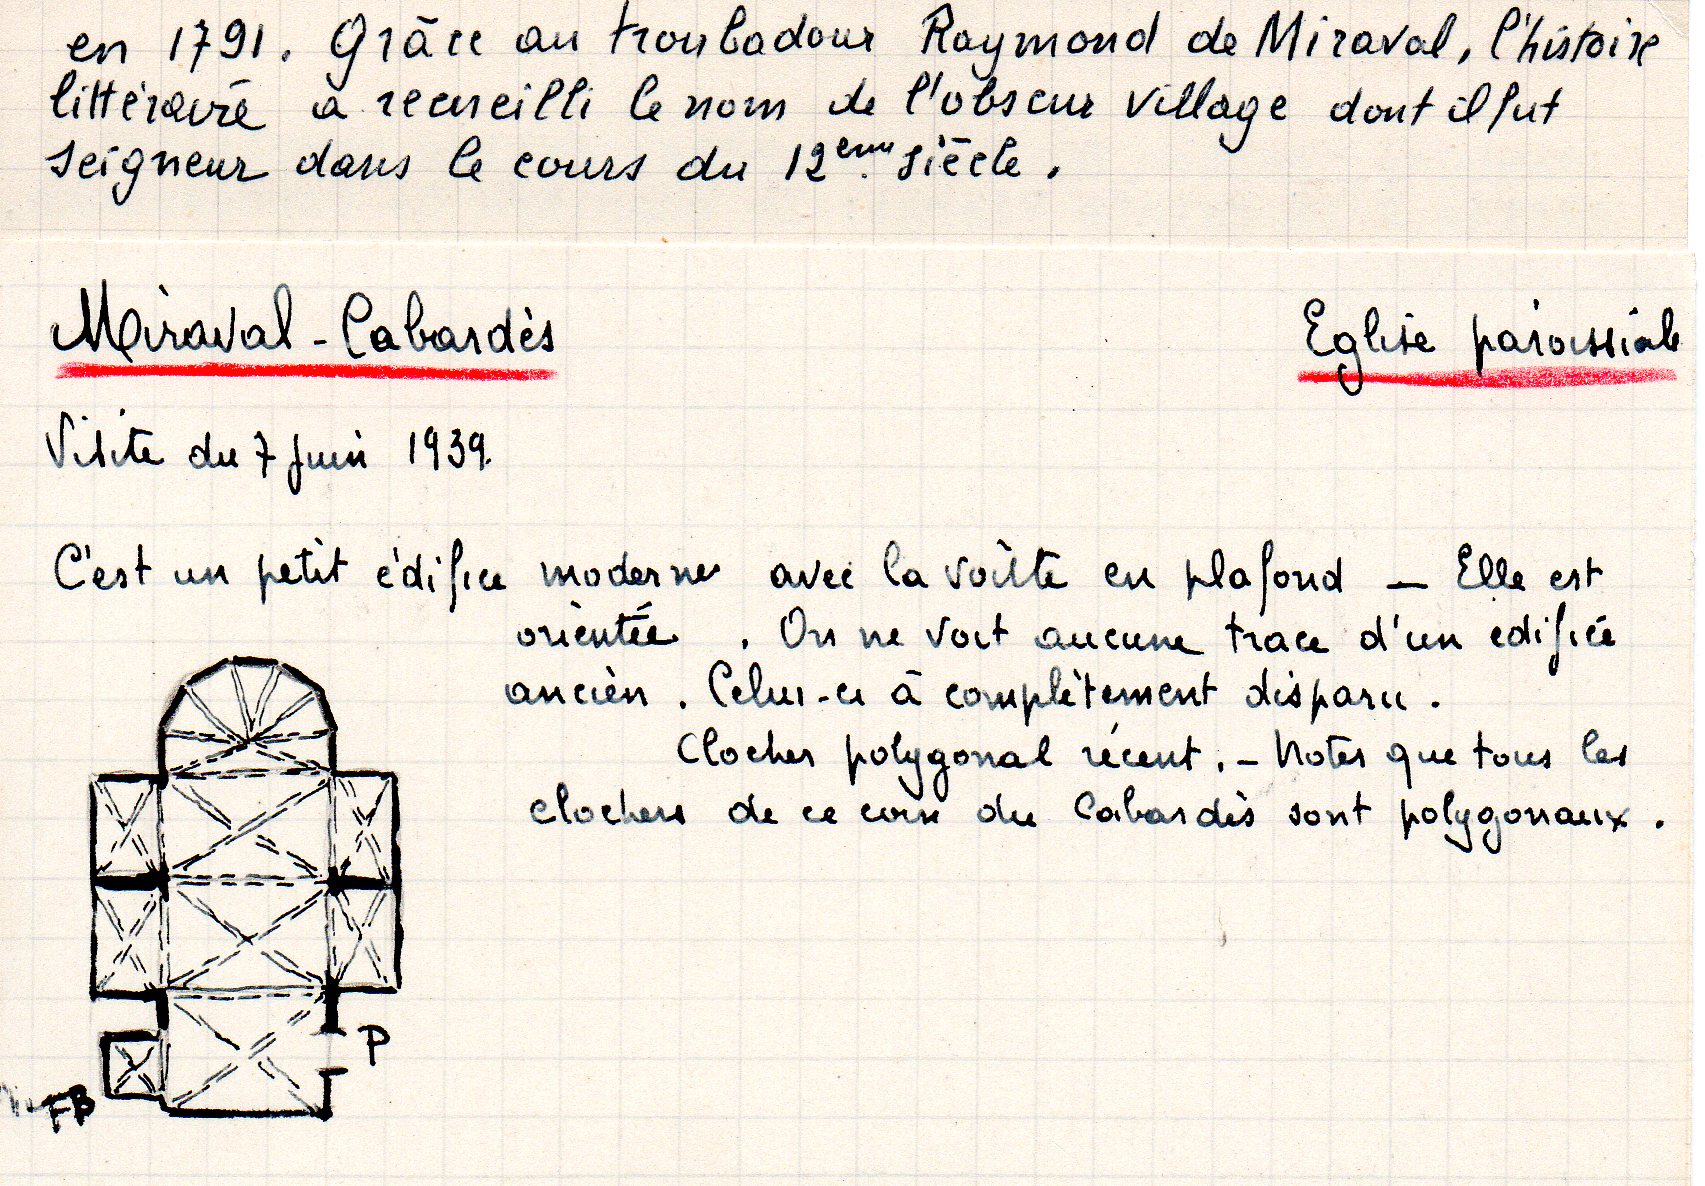 en 1791. Grâce au troubadour Raymond de Miraval, l'histoire
littéraire a recueilli le nom de l'obscur village dont il fut
seigneur dans le cours du 12ème siècle.
Miraval-Cabardès
Eglise paroissiale
Visite du 7 juin 1939.
C'est un petit édifice moderne avec la voûte en plafond — Elle est
orientée. On ne voit aucune trace d'un édifice
ancien. Celui-ci à complètement disparu.
Clocher polygonal récent. — Noter que tous les
clochers de ce coin du Cabardès sont polygonaux.
P
FB